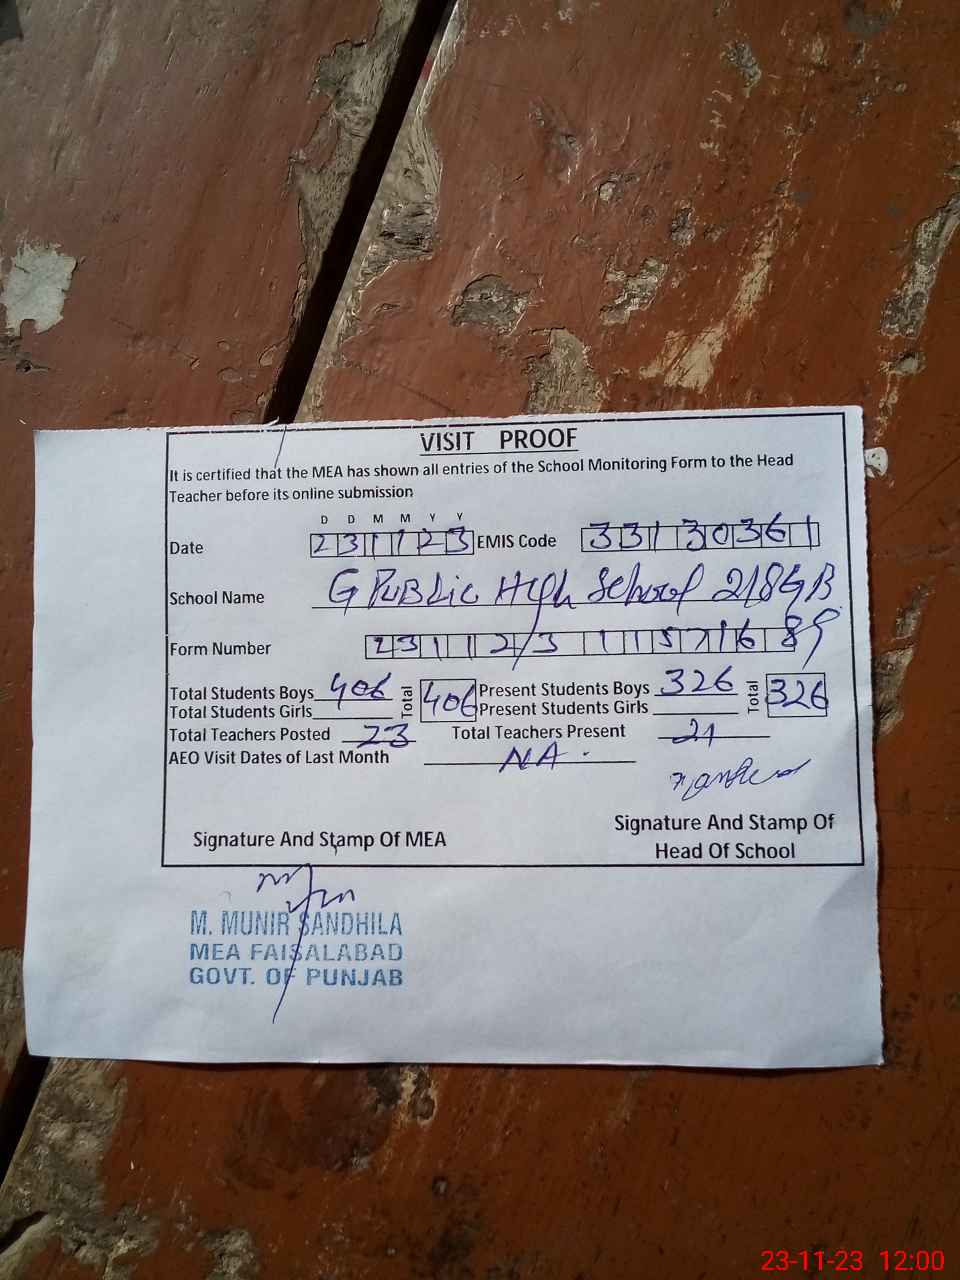 VISIT PROOF
It is certified that the MEA has shown all entries of the School Monitoring Form to the Head
Teacher before its online submission
D D M M Y Y
Date 231123 EMIS Code 33130361
School Name G Public High School 218 GB
Form Number 23112/3 11571689
Total Students Boys 406 Total 406 Present Students Boys 326 Total 326
Total Students Girls Present Students Girls
Total Teachers Posted 23 Total Teachers Present 21
AEO Visit Dates of Last Month NA
Signature And Stamp Of MEA
Signature And Stamp Of
Head Of School
M. MUNIR SANDHILA
MEA FAISALABAD
GOVT. OF PUNJAB
23-11-23 12:00